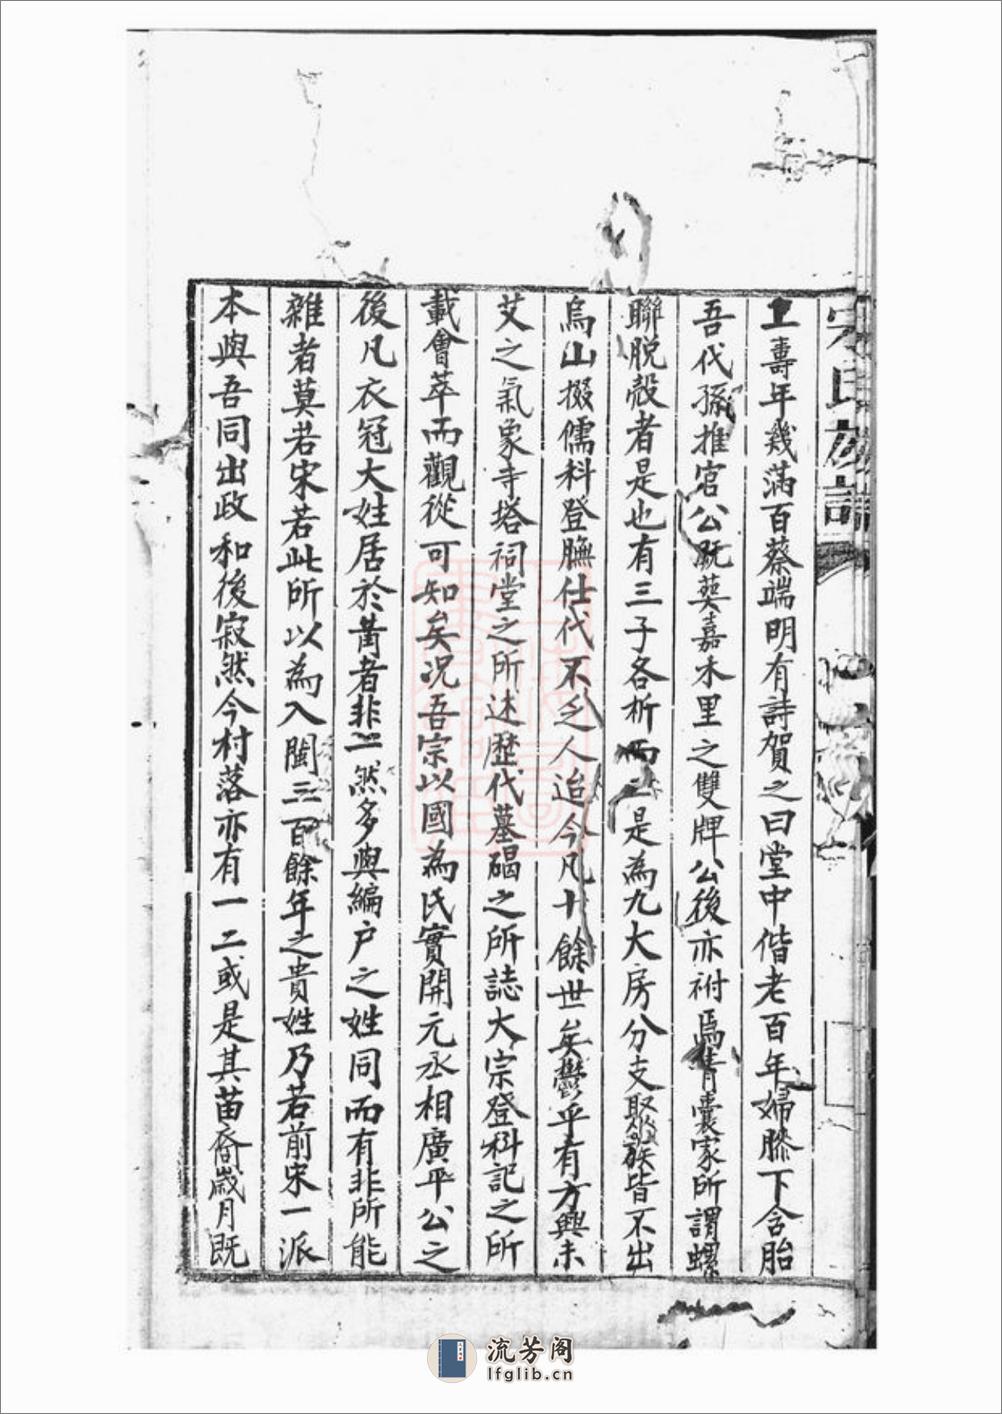 宋氏族譜
上壽年幾滿百蔡端明有詩賀之曰堂中偕老百年婦膝下含胎
吾代孫推官公既葬嘉禾里之雙牌公後亦祔焉青囊家所謂螺
聯脫殼者是也有三子各析而三是為九大房分支聚族皆不出
烏山掇儒科登膴仕代不乏人迨今凡十餘世矣鬱乎有方興未
艾之氣象寺塔祠堂之所述歷代墓碣之所誌大宗登科記之所
載會萃而觀從可知矣况吾宗以國為氏實開元丞相廣平公之
後凡衣冠大姓居於莆者非一然多與編户之姓同而有非所能
雜者莫若宋若此所以為入閩三百餘年之貴姓乃若前宋一派
本與吾同出政和後寂然今村落亦有一二或是其苗裔歲月既
流芳阁
lfglib.cn